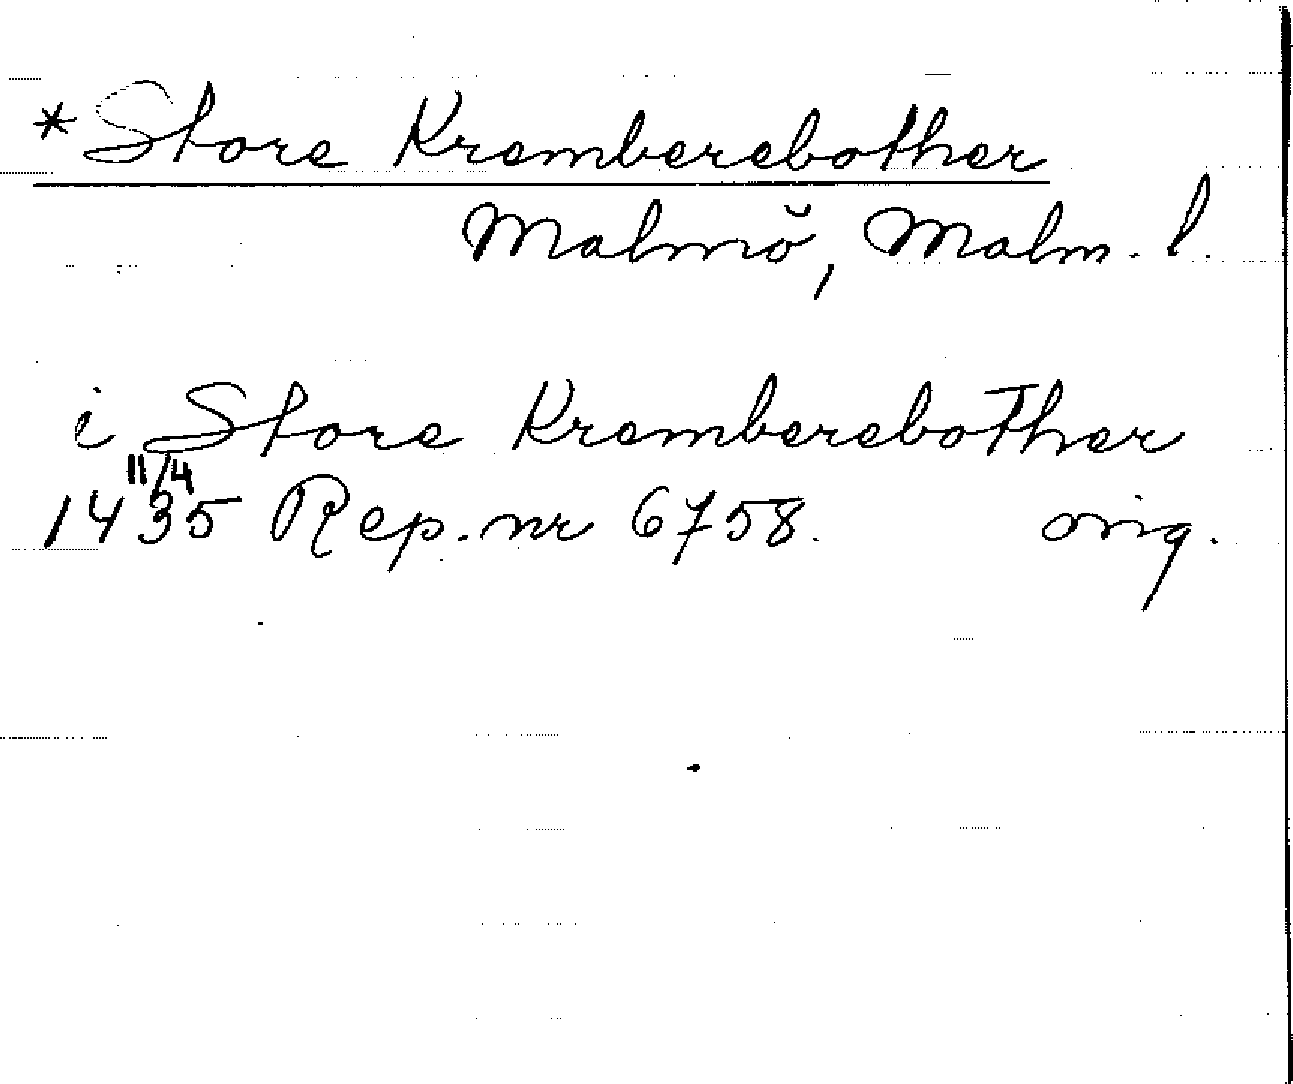 *Store Kremberebother
Malmö, Malm. l.
i Store Kremberebother
11/4
1435 Rep. nr 6758. orig.